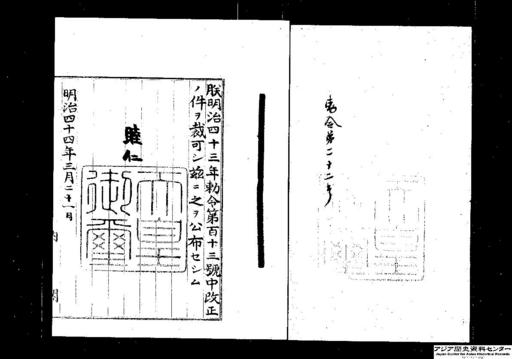 勅令第二十二号
朕明治四十三年勅令第百十三號中改正
ノ件ヲ裁可シ茲ニ之ヲ公布セシム
睦仁
天皇御璽
明治四十四年三月二十一日
内閣
アジア歴史資料センター
Japan Center for Asian Historical Records